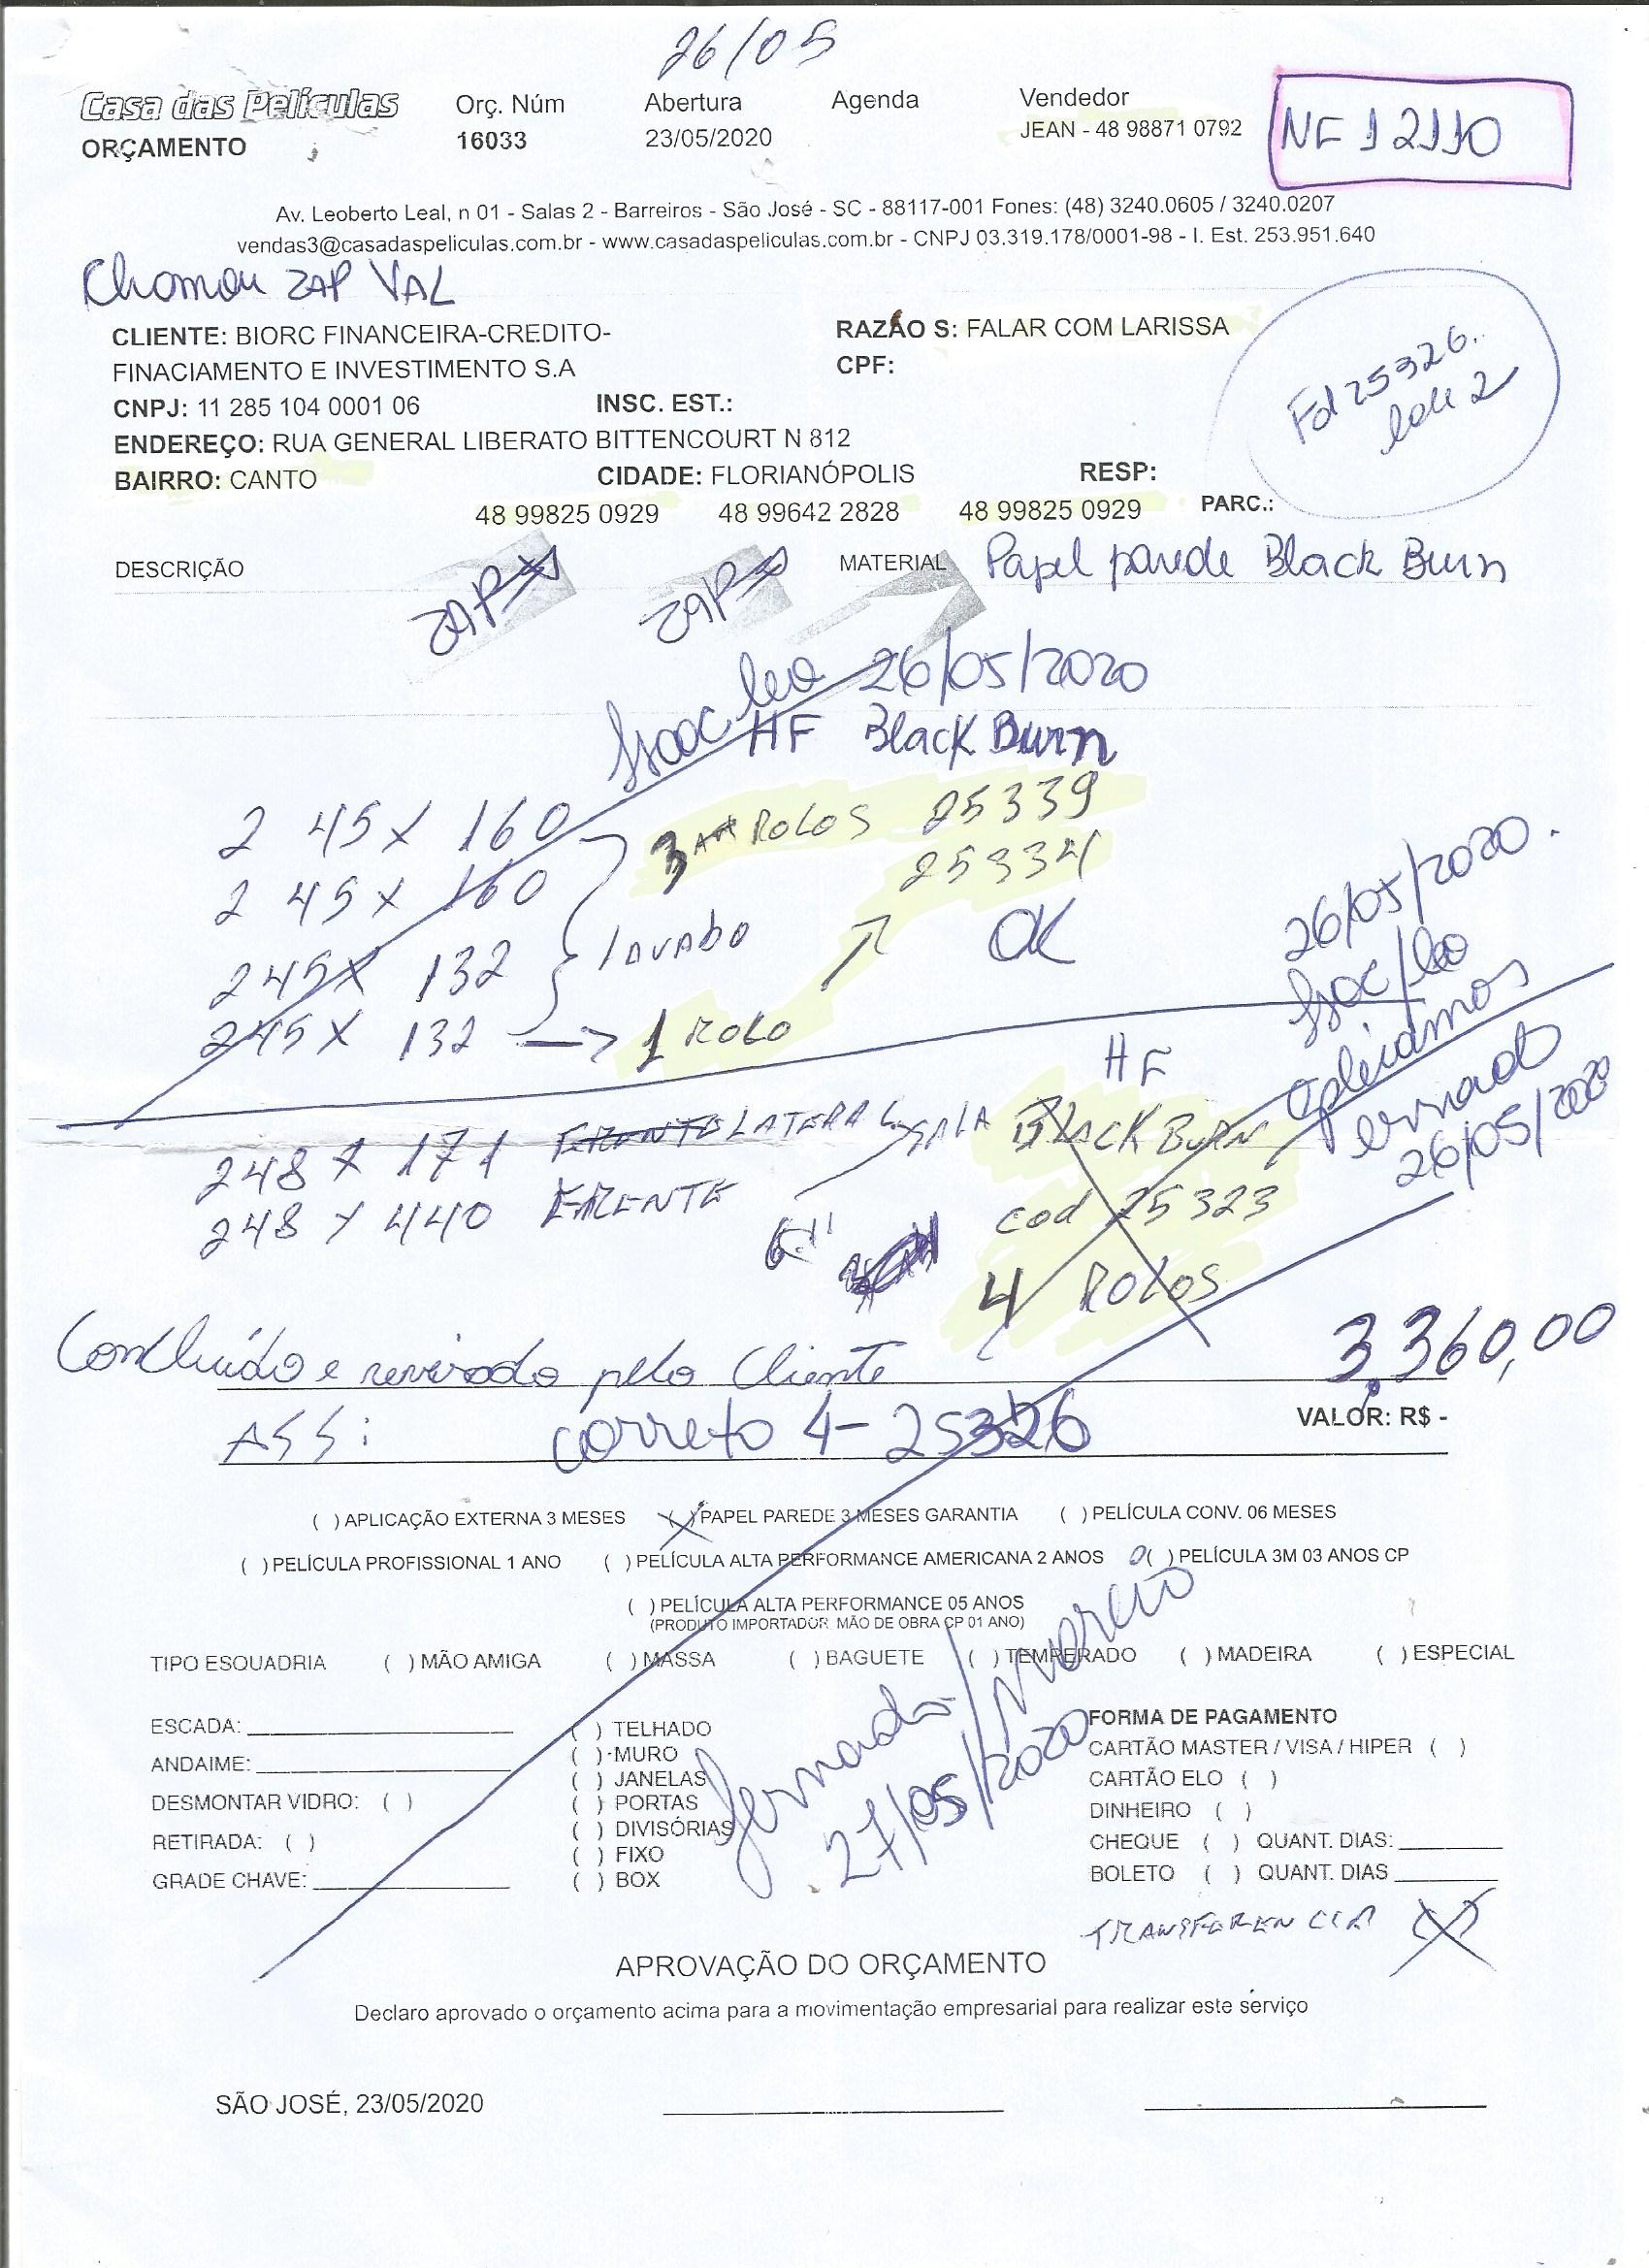 26/05
Casa das Películas
ORÇAMENTO
Orç. Núm
16033
Abertura
23/05/2020
Agenda
Vendedor
JEAN - 48 98871 0792
NF 12110
Av. Leoberto Leal, n 01 - Salas 2 - Barreiros - São José - SC - 88117-001 Fones: (48) 3240.0605 / 3240.0207
vendas3@casadaspeliculas.com.br - www.casadaspeliculas.com.br - CNPJ 03.319.178/0001-98 - I. Est. 253.951.640
Chamou ZAP VAL
CLIENTE: BIORC FINANCEIRA-CREDITO-
FINACIAMENTO E INVESTIMENTO S.A
RAZÃO S: FALAR COM LARISSA
CPF:
CNPJ: 11 285 104 0001 06 INSC. EST.:
ENDEREÇO: RUA GENERAL LIBERATO BITTENCOURT N 812
BAIRRO: CANTO CIDADE: FLORIANÓPOLIS RESP:
48 99825 0929 48 99642 2828 48 99825 0929 PARC.:
25326
2
DESCRIÇÃO
ZAP
ZAP
MATERIAL Papel parede Black Burn
26/05/2020
HF Black Burn
245 x 160
245 x 160
245 x 132
245 x 132 → 1 ROLO
3 ROLOS 25339
25334
LAVABO
OK
26/05/2020.
26/05/2020
HF
248 x 171 FRENTE LATERAL SALA BLACK BURN
248 x 440 FRENTE
cod 25323
4 ROLOS
Concluído e revisado pelo Cliente
3.360,00
ASS:
correto 4- 25326
VALOR: R$ -
( ) APLICAÇÃO EXTERNA 3 MESES (X) PAPEL PAREDE 3 MESES GARANTIA ( ) PELÍCULA CONV. 06 MESES
( ) PELÍCULA PROFISSIONAL 1 ANO ( ) PELÍCULA ALTA PERFORMANCE AMERICANA 2 ANOS ( ) PELÍCULA 3M 03 ANOS CP
( ) PELÍCULA ALTA PERFORMANCE 05 ANOS
(PRODUTO IMPORTADOR MÃO DE OBRA CP 01 ANO)
TIPO ESQUADRIA ( ) MÃO AMIGA ( ) MASSA ( ) BAGUETE ( ) TEMPERADO ( ) MADEIRA ( ) ESPECIAL
ESCADA:
ANDAIME:
DESMONTAR VIDRO: ( )
RETIRADA: ( )
GRADE CHAVE:
( ) TELHADO
( ) MURO
( ) JANELAS
( ) PORTAS
( ) DIVISÓRIAS
( ) FIXO
( ) BOX
27/05/2020
FORMA DE PAGAMENTO
CARTÃO MASTER / VISA / HIPER ( )
CARTÃO ELO ( )
DINHEIRO ( )
CHEQUE ( ) QUANT. DIAS:
BOLETO ( ) QUANT. DIAS
TRANSFERENCIA (X)
APROVAÇÃO DO ORÇAMENTO
Declaro aprovado o orçamento acima para a movimentação empresarial para realizar este serviço
SÃO JOSÉ, 23/05/2020